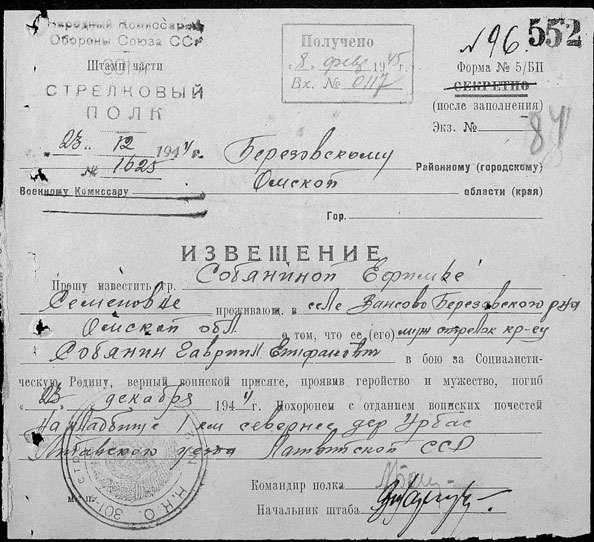 Народный Комиссариат
Обороны Союза ССР
Штамп части
301
СТРЕЛКОВЫЙ
ПОЛК
23. 12 1944 г.
№ 1625
Военному Комиссару
Получено
8. фев 1945 г.
Вх. № 0117
№96. 552
Форма № 5/БП
СЕКРЕТНО
(после заполнения)
Экз. №
84
Березовскому Районному (городскому)
Омской области (края)
Гор.
ИЗВЕЩЕНИЕ
Прошу известить гр. Собяниной Ефимье
Семеновне проживающ. в селе Вансово Березовского р-на
Омской обл. о том, что ее (его) муж стрелок кр-ец
Собянин Гавриил Епифанович в бою за Социалисти-
ческую Родину, верный воинской присяге, проявив геройство и мужество, погиб
23 декабря 1944 г. Похоронен с отданием воинских почестей
на кладбище 1 км севернее дер Урбас
Митавского уезда Латвийской ССР
Командир полка
м. п.
Начальник штаба
Н.К.О. 301 СТРЕЛ